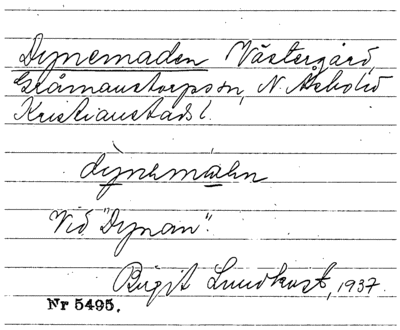 Dynemaden Västergård,
Gråmanstorps sn, N. Åsbohd
Kristianstads l.
dynemàen
Vid "Dynan".
Birgit Lundkvist, 1937.
Nr 5495.